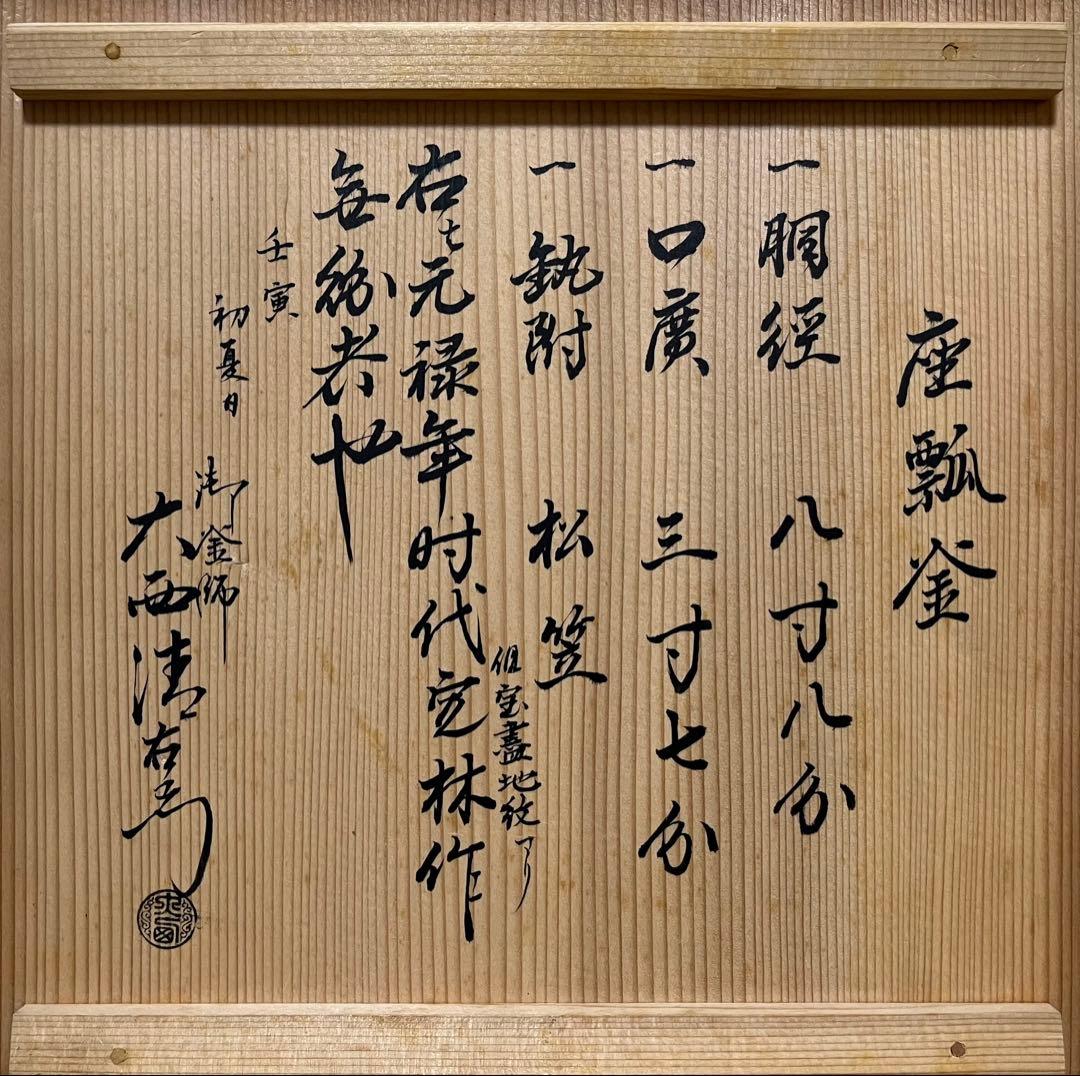 座瓢釜
一胴經 八寸八分
一口廣 三寸七分
一釻附 松笠
但宝盡地紋アリ
右ハ元禄年时代定林作
無紛者也
壬寅
初夏日
御釜師
大西清右衛門
大西